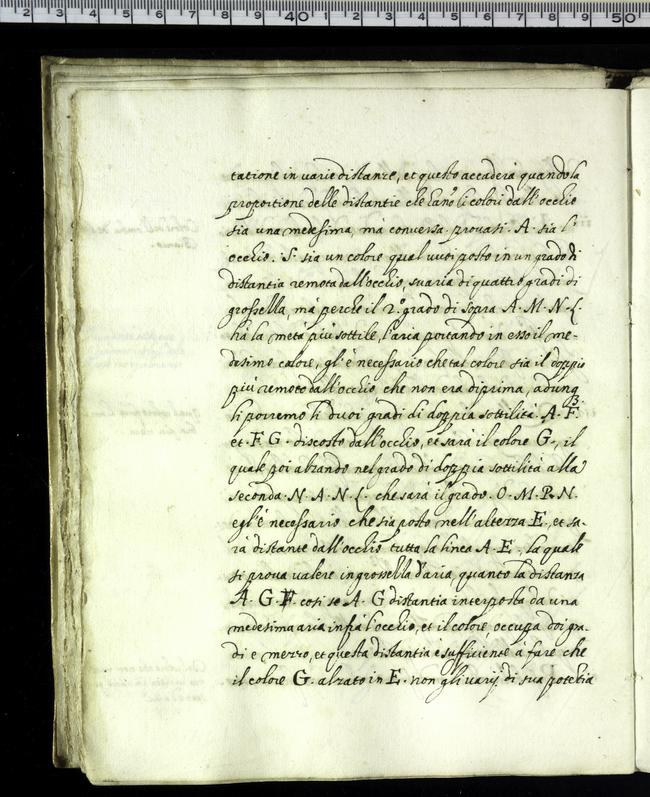 tatione in varie distanze, et questo accaderà quando la
proportione delle distantie che hano li colori dall'occhio
sia una medesima, mà conversa. provasi. A. sia l'
occhio. S. sia un colore qual vuoi posto in un grado di
distantia remota dall'occhio, su aria di quattro gradi di
grossella, mà perche il 2.º grado di sopra A. M. N. L.
hà la metà più sottile, l'aria portando in esso il me-
desimo calore, gl'è necessario che tal colore sia il doppio
più remoto dall'occhio che non era di prima, adunq
li porremo li duoi gradi di doppia sottilità. A. F.
et. F. G. discosto dall'occhio, et sarà il colore G., il
quale poi alzando nel grado di doppia sottilità alla
seconda. N. A. N. L. che sarà il grado. O. M. P. N.
egl'è necessario che sia posto nell'altezza E., et sa-
rà distante dall'occhio tutta la linea A. E., la quale
si prova valere in grossella d'aria, quanto la distanza
A. G. F. cosi se A. G distantia interposta da una
medesima aria infra l'occhio, et il colore, occupa doi gra-
di e mezzo, et questa distantia è sufficiente à fare che
il colore G. alzato in E. non gli varij di sua potetia